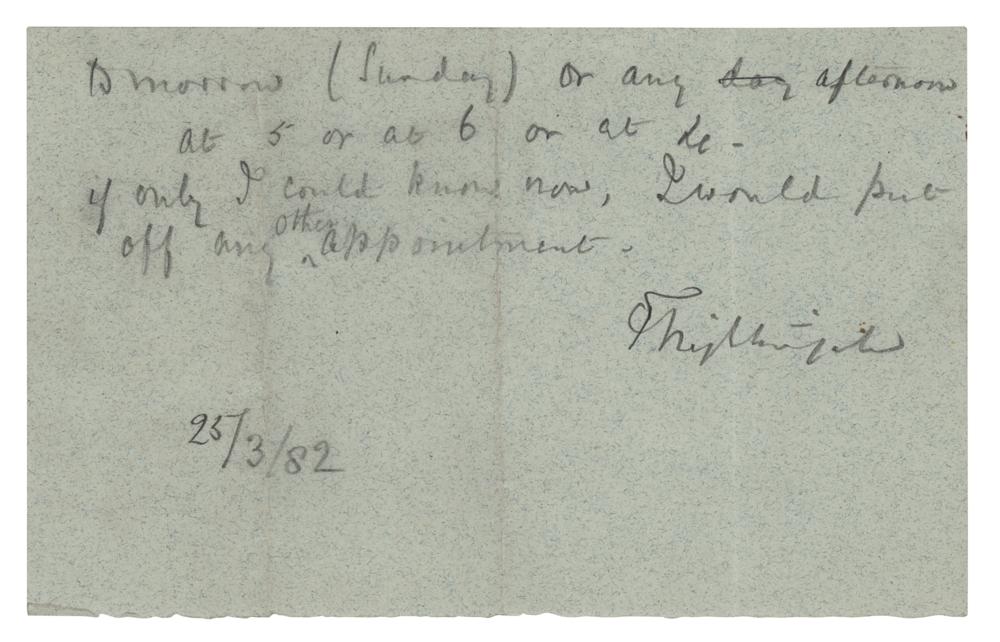 Tomorrow (Sunday) or any day afternoon
at 5 or at 6 or at
if only I could know now, I would put
off any other appointment.
F Nightingale
25/3/82